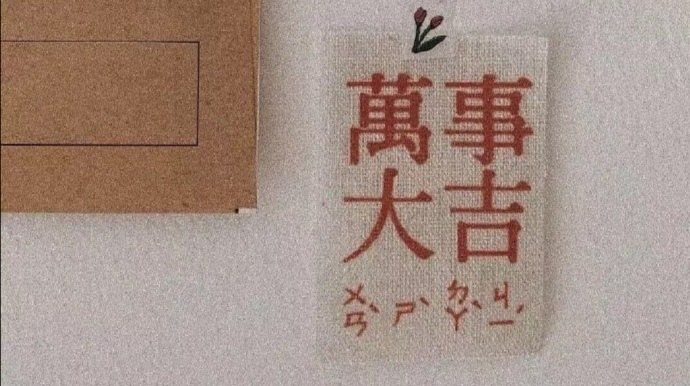 萬事
大吉
ㄨㄢˋ ㄕˋ ㄉㄚˋ ㄐㄧˋ